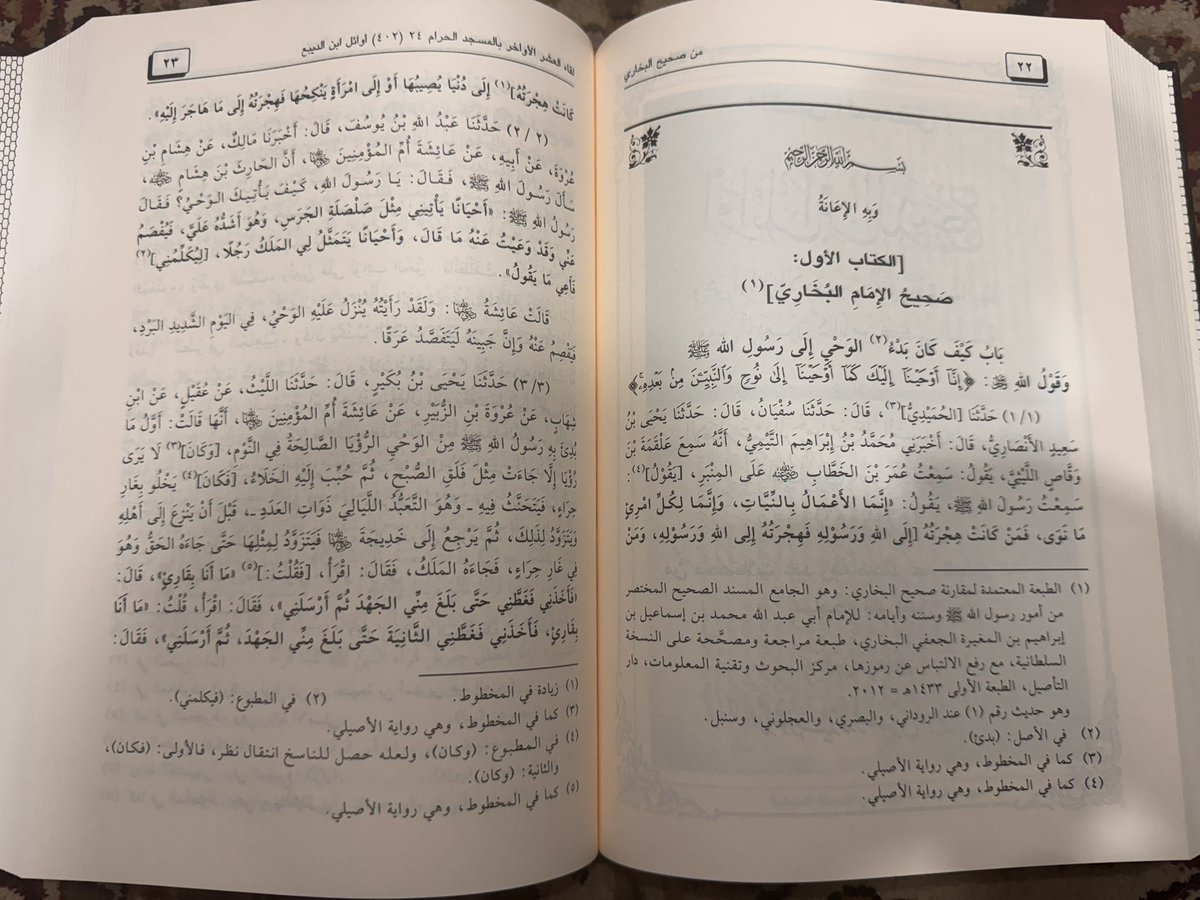 ٢٢
من صحيح البخاري
بِسْمِ اللَّهِ الرَّحْمَنِ الرَّحِيمِ
وَبِهِ الإِعَانَةُ
[الكتاب الأول:
صَحِيحُ الإِمَامِ البُخَارِيّ](١)
بَابُ كَيْفَ كَانَ بَدْءُ(٢) الوَحْيِ إِلَى رَسُولِ الله ﷺ
وَقَوْلُ اللهِ ﷻ: ﴿إِنَّا أَوْحَيْنَا إِلَيْكَ كَمَا أَوْحَيْنَا إِلَى نُوحٍ وَالنَّبِيِّنَ مِنْ بَعْدِهِ﴾
(١/١) حَدَّثَنَا [الحُمَيْدِيُّ](٣)، قَالَ: حَدَّثَنَا سُفْيَانُ، قَالَ: حَدَّثَنَا يَحْيَى بْنُ
سَعِيدٍ الأَنْصَارِيُّ، قَالَ: أَخْبَرَنِي مُحَمَّدُ بْنُ إِبْرَاهِيمَ التَّيْمِيُّ، أَنَّهُ سَمِعَ عَلْقَمَةَ بْنَ
وَقَّاصٍ اللَّيْثِيَّ، يَقُولُ: سَمِعْتُ عُمَرَ بْنَ الخَطَّابِ ﵁ عَلَى المِنْبَرِ، [يَقُولُ](٤):
سَمِعْتُ رَسُولَ اللهِ ﷺ، يَقُولُ: «إِنَّمَا الأَعْمَالُ بِالنِّيَّاتِ، وَإِنَّمَا لِكُلِّ امْرِئٍ
مَا نَوَى، فَمَنْ كَانَتْ هِجْرَتُهُ [إِلَى اللهِ وَرَسُولِهِ فَهِجْرَتُهُ إِلَى اللهِ وَرَسُولِهِ، وَمَنْ
(١) الطبعة المعتمدة لمقارنة صحيح البخاري: وهو الجامع المسند الصحيح المختصر
من أمور رسول الله ﷺ وسننه وأيامه: للإمام أبي عبد الله محمد بن إسماعيل بن
إبراهيم بن المغيرة الجعفي البخاري، طبعة مراجعة ومصحَّحة على النسخة
السلطانية، مع رفع الالتباس عن رموزها، مركز البحوث وتقنية المعلومات، دار
التأصيل، الطبعة الأولى ١٤٣٣هـ = ٢٠١٢.
وهو حديث رقم (١) عند الروداني، والبصري، والعجلوني، وسنبل.
(٢) في الأصل: (بدئ).
(٣) كما في المخطوط، وهي رواية الأصيلي.
(٤) كما في المخطوط، وهي رواية الأصيلي.
لقاء العشر الأواخر بالمسجد الحرام ٢٤ (٤٠٢) أوائل ابن الديبع
٢٣
كَانَتْ هِجْرَتُهُ](١) إِلَى دُنْيَا يُصِيبُهَا أَوْ إِلَى امْرَأَةٍ يَنْكِحُهَا فَهِجْرَتُهُ إِلَى مَا هَاجَرَ إِلَيْهِ».
(٢/٢) حَدَّثَنَا عَبْدُ اللهِ بْنُ يُوسُفَ، قَالَ: أَخْبَرَنَا مَالِكٌ، عَنْ هِشَامِ بْنِ
عُرْوَةَ، عَنْ أَبِيهِ، عَنْ عَائِشَةَ أُمِّ المُؤْمِنِينَ ﵂، أَنَّ الحَارِثَ بْنَ هِشَامٍ ﵁،
سَأَلَ رَسُولَ اللهِ ﷺ، فَقَالَ: يَا رَسُولَ اللهِ، كَيْفَ يَأْتِيكَ الوَحْيُ؟ فَقَالَ
رَسُولُ اللهِ ﷺ: «أَحْيَانًا يَأْتِينِي مِثْلَ صَلْصَلَةِ الجَرَسِ، وَهُوَ أَشَدُّهُ عَلَيَّ، فَيُفْصَمُ
عَنِّي وَقَدْ وَعَيْتُ عَنْهُ مَا قَالَ، وَأَحْيَانًا يَتَمَثَّلُ لِي المَلَكُ رَجُلًا، [لِيُكَلِّمُنِي](٢)
فَأَعِي مَا يَقُولُ».
قَالَتْ عَائِشَةُ ﵂: وَلَقَدْ رَأَيْتُهُ يُنْزَلُ عَلَيْهِ الوَحْيُ، فِي اليَوْمِ الشَّدِيدِ البَرْدِ،
فَيَفْصِمُ عَنْهُ وَإِنَّ جَبِينَهُ لَيَتَفَصَّدُ عَرَقًا.
(٣/٣) حَدَّثَنَا يَحْيَى بْنُ بُكَيْرٍ، قَالَ: حَدَّثَنَا اللَّيْثُ، عَنْ عُقَيْلٍ، عَنِ ابْنِ
شِهَابٍ، عَنْ عُرْوَةَ بْنِ الزُّبَيْرِ، عَنْ عَائِشَةَ أُمِّ المُؤْمِنِينَ ﵂، أَنَّهَا قَالَتْ: أَوَّلُ مَا
بُدِئَ بِهِ رَسُولُ اللهِ ﷺ مِنَ الوَحْيِ الرُّؤْيَا الصَّالِحَةُ فِي النَّوْمِ، [وَكَانَ](٣) لَا يَرَى
رُؤْيَا إِلَّا جَاءَتْ مِثْلَ فَلَقِ الصُّبْحِ، ثُمَّ حُبِّبَ إِلَيْهِ الخَلَاءُ، [فَكَانَ](٤) يَخْلُو بِغَارِ
حِرَاءٍ، فَيَتَحَنَّثُ فِيهِ ـ وَهُوَ التَّعَبُّدُ اللَّيَالِيَ ذَوَاتِ العَدَدِ ـ، قَبْلَ أَنْ يَنْزِعَ إِلَى أَهْلِهِ
وَيَتَزَوَّدُ لِذَلِكَ، ثُمَّ يَرْجِعُ إِلَى خَدِيجَةَ ﵂ فَيَتَزَوَّدُ لِمِثْلِهَا حَتَّى جَاءَهُ الحَقُّ وَهُوَ
فِي غَارِ حِرَاءٍ، فَجَاءَهُ المَلَكُ، فَقَالَ: اقْرَأْ، [فَقُلْتُ:](٥) «مَا أَنَا بِقَارِئٍ»، قَالَ:
«فَأَخَذَنِي فَغَطَّنِي حَتَّى بَلَغَ مِنِّي الجَهْدَ ثُمَّ أَرْسَلَنِي»، فَقَالَ: اقْرَأْ، قُلْتُ: «مَا أَنَا
بِقَارِئٍ، فَأَخَذَنِي فَغَطَّنِي الثَّانِيَةَ حَتَّى بَلَغَ مِنِّي الجَهْدَ، ثُمَّ أَرْسَلَنِي»، فَقَالَ:
(١) زيادة في المخطوط. (٢) في المطبوع: (فيكلمني).
(٣) كما في المخطوط، وهي رواية الأصيلي.
(٤) في المطبوع: (وكان)، ولعله حصل للناسخ انتقال نظر، فالأولى: (فكان)،
والثانية: (وكان).
(٥) كما في المخطوط، وهي رواية الأصيلي.